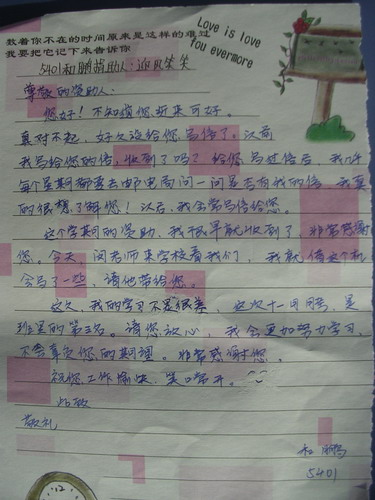 数着你不在的时间原来是这样的难过
我要把它记下来告诉你
Love is love
You evermore
5401和鹏 资助人:迎风笑笑
尊敬的资助人:
您好!不知道您近来可好。
真对不起,好久没给您写信了。以前
我写给您的信,收到了吗?给您写过信后,我几乎
每个星期都要去邮电局问一问是否有我的信,我真
的很想了解您!以后,我会常写信给您。
这个学期的资助,我很早就收到了,非常感谢
您。今天,闵老师来学校看我们,我就借这个机
会写了一些,请他带给您。
这久,我的学习不是很差,这次十一月考,是
班里的第三名。请您放心,我会更加努力学习,
不会辜负您的期望。非常感谢您。
祝您工作愉快,笑口常开。
此致
敬礼
和鹏
5401
12